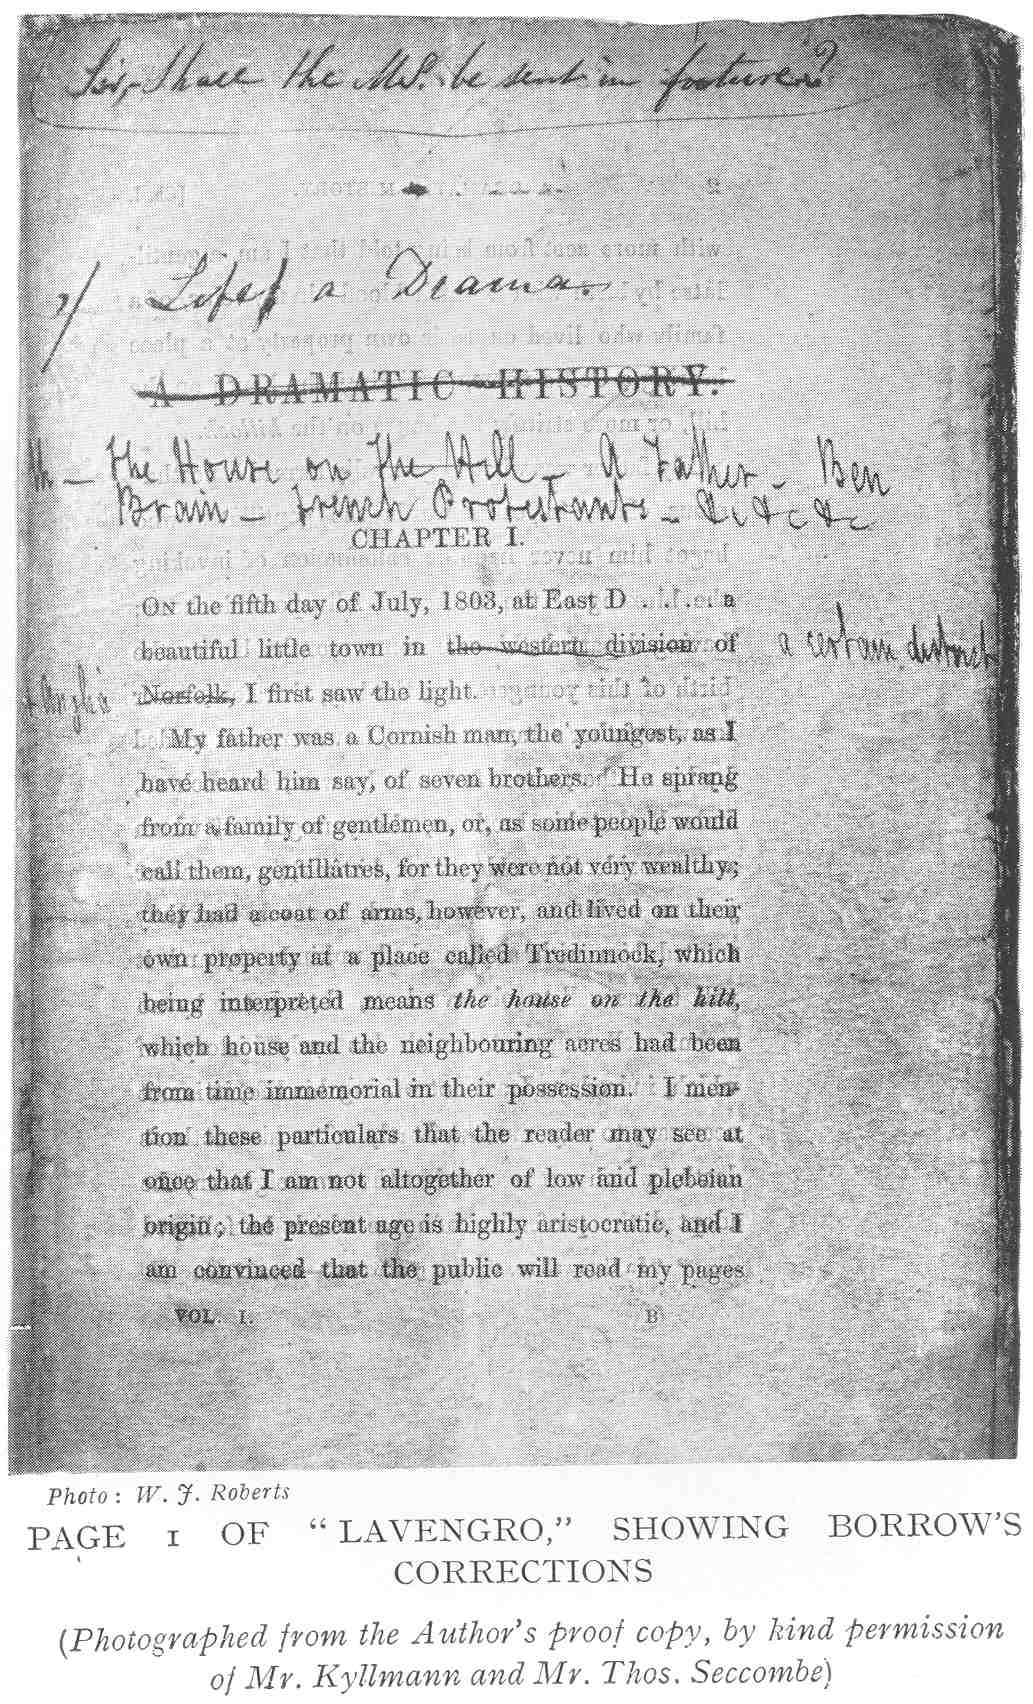 Sir, Shall the MS. be sent in future?
Life, a Drama.
A DRAMATIC HISTORY.
The House on The Hill – A Father – Ben
Brain – French Protestants – &c &c &c
CHAPTER I.
ON the fifth day of July, 1803, at East D . . . . a
beautiful little town in the western division of
a certain district
Norfolk, I first saw the light.
My father was a Cornish man, the youngest, as I
have heard him say, of seven brothers. He sprang
from a family of gentlemen, or, as some people would
call them, gentillâtres, for they were not very wealthy;
they had a coat of arms, however, and lived on their
own property at a place called Tredinnock, which
being interpreted means the house on the hill,
which house and the neighbouring acres had been
from time immemorial in their possession. I men-
tion these particulars that the reader may see at
once that I am not altogether of low and plebeian
origin; the present age is highly aristocratic, and I
am convinced that the public will read my pages
VOL. I. B
Photo: W. J. Roberts
PAGE 1 OF “LAVENGRO,” SHOWING BORROW'S
CORRECTIONS
(Photographed from the Author's proof copy, by kind permission
of Mr. Kyllmann and Mr. Thos. Seccombe)